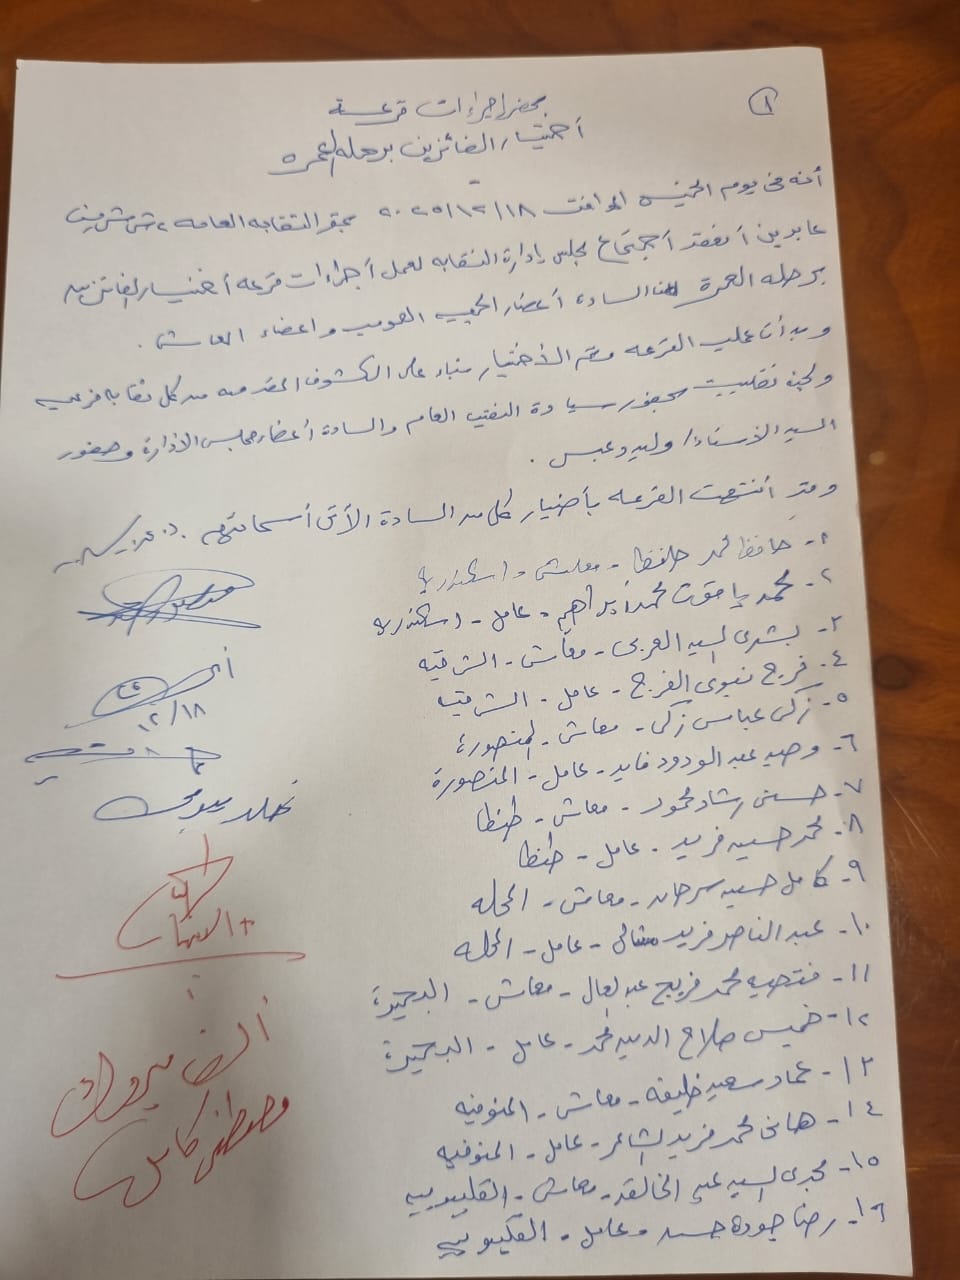 ١
محضر إجراءات قرعة
أختيار الفائزين برحلة العمرة
أنه فى يوم الخميس الموافق ٢٠٢٥/١٢/١٨ بمقر النقابه العامه
عابدين أنعقد أجتماع مجلس إدارة النقابه لعمل أجراءات قرعه أختيار الفائزين
برحله العمرة السادة أعضاء الجمعيه العموميه واعضاء المعاش .
وبدأت عمليه القرعه وتم الأختيار بناء على الكشوف المقدمه من كل نقابه فرعيه
ولجنه نقابيه بحضور سيادة النقيب العام والسادة أعضاء مجلس الادارة وحضور
السيد الاستاذ/ وليد وعبس .
وقد أنتهت القرعه بأختيار كل من السادة الأتى أسمائهم :
١- حافظ محمد حافظ - معاش - اسكندريه
٢- محمد ياقوت محمد أبراهيم - عامل - اسكندريه
٣- بشرى السيد العربى - معاش - الشرقيه
٤- فرج نبوى الفرج - عامل - الشرقيه
٥- زكى عباس زكى - معاش - المنصورة
٦- وحيد عبد الودود فايد - عامل - المنصورة
٧- حسنى رشاد محمود - معاش - طنطا
٨- محمد حسين فريد - عامل - طنطا
٩- كامل حسين سرحان - معاش - المحله
١٠- عبد الناصر فريد مشالى - عامل - المحله
١١- فتحيه محمد فريج عبد العال - معاش - البحيرة
١٢- خميس صلاح الدين محمد - عامل - البحيرة
١٣- عماد سعيد خليفه - معاش - المنوفيه
١٤- هانى محمد فريد الشاعر - عامل - المنوفيه
١٥- مجدى السيد عبد الخالق - معاش - القليوبيه
١٦- رضا جودة حسن - عامل - القليوبيه
١٢/١٨
ألف مبروك
مصطفى كامل